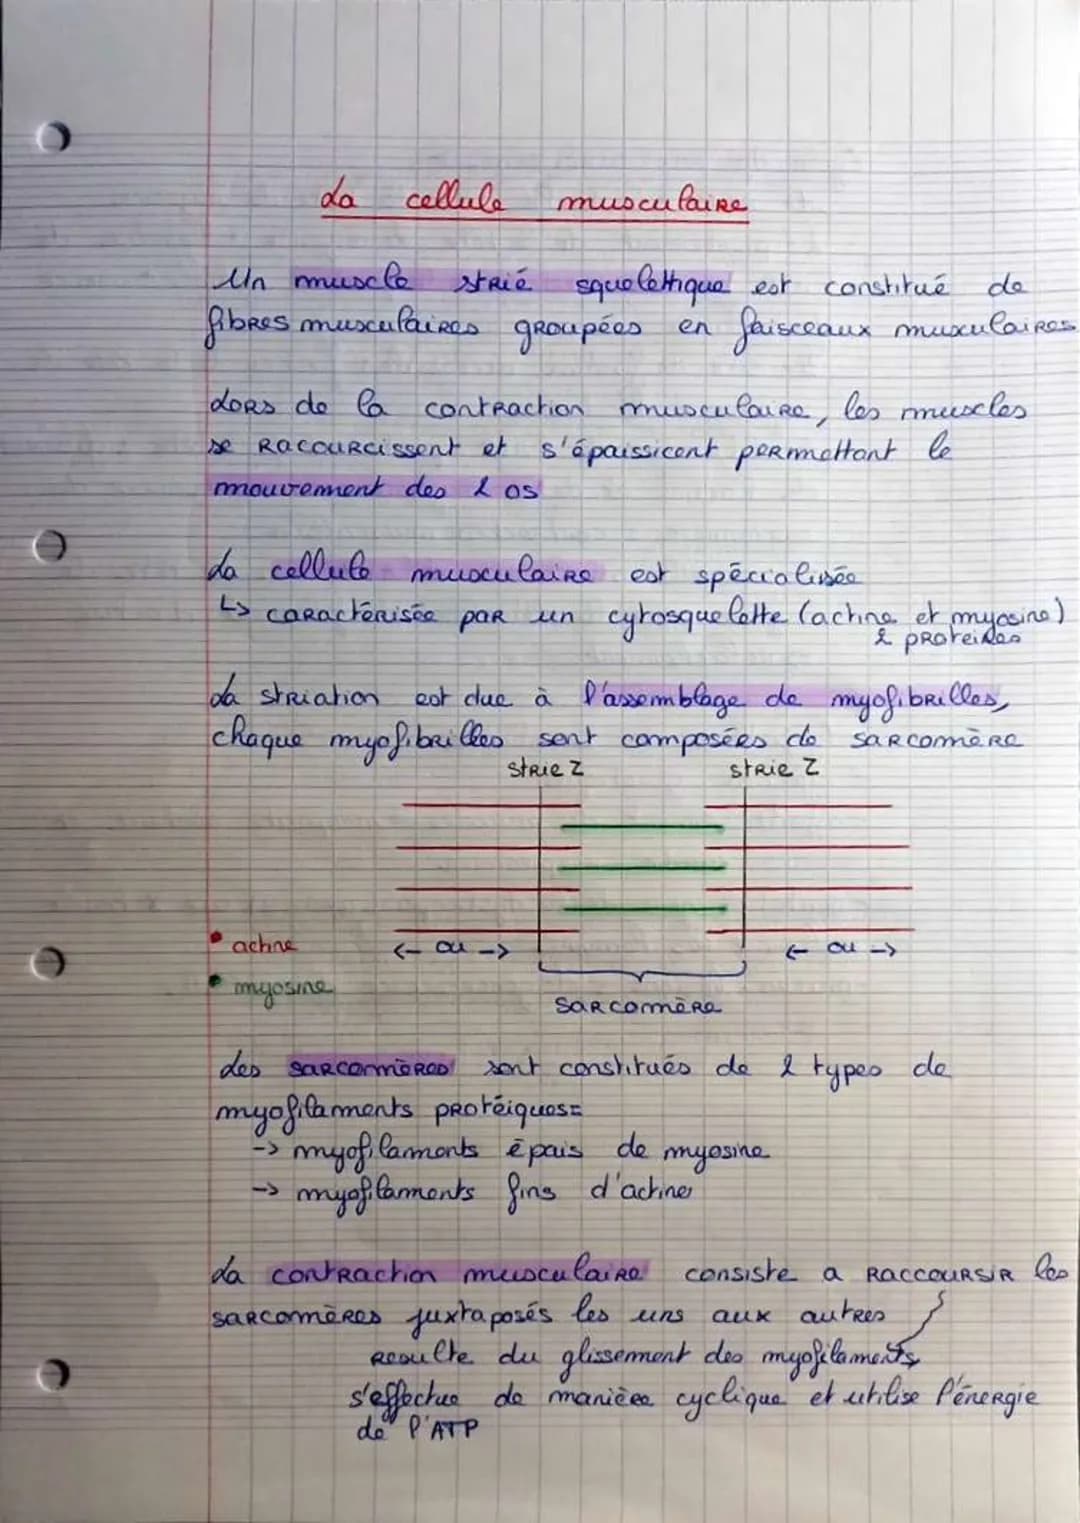 La cellule musculaire
Un muscle strié squelettique est constitué de
fibres musculaires groupées en faisceaux musculaires
Lors de la contraction musculaire, les muscles
se racourcissent et s'épaissicent permettant le
mouvement des 2 os
La cellule musculaire est spécialisée
↳ caractérisée par un cytosquelette (actine et myosine)
2 proteines
La striation est due à l'assemblage de myofibrilles,
chaque myofibrilles sont composées de sarcomère
strie Z strie Z
• actine <- ou -> <- ou ->
• myosine
sarcomère
Les sarcomères sont constitués de 2 types de
myofilaments protéiques=
-> myofilaments épais de myosine
-> myofilaments fins d'actine
La contraction musculaire consiste a raccoursir les
sarcomères juxtaposés les uns aux autres
resulte du glissement des myofilaments
s'effectue de manière cyclique et utilise l'énergie
de l'ATP